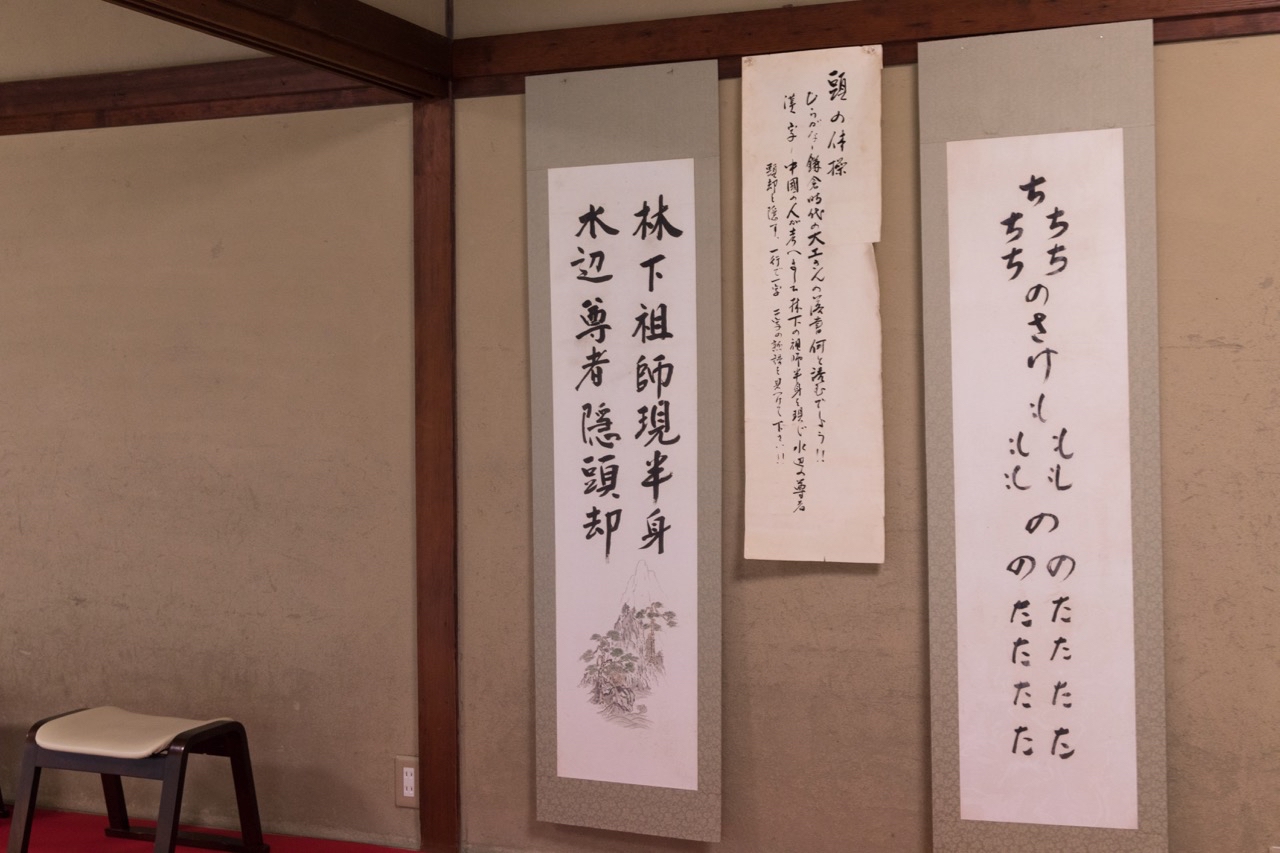 ち
ちち
ちち
のさけ
も
もも
もも
の
のたたたた
のたたたた
頭の体操
ひらがな、鎌倉時代の大工さんの落書 何と読むでしょう!!
漢字、中國の人が考へました 林下の祖師半身を現じ 水辺の尊者
頭却を隠す、一行で一字 二字の熟語を見つけて下さい!!
林下祖師現半身
水辺尊者隠頭却